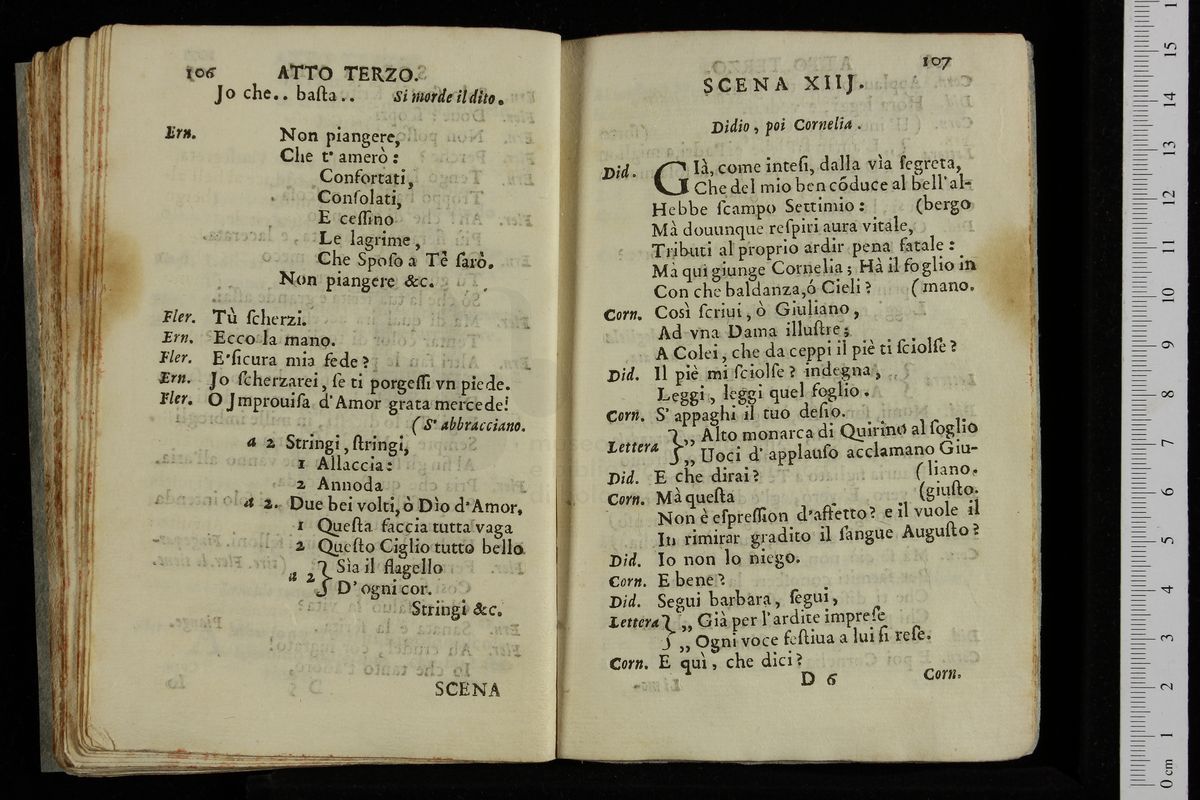 106 ATTO TERZO.
Jo che.. baſta.. Si morde il dito.
Ern. Non piangere,
Che t' amerò :
Confortati,
Conſolati,
E ceſſino
Le lagrime,
Che Spoſo a Tè ſarò.
Non piangere &c.
Fler. Tù ſcherzi.
Ern. Ecco la mano.
Fler. E' ſicura mia fede ?
Ern. Jo ſcherzarei, ſe ti porgeſſi vn piede.
Fler. O Jmprouiſa d'Amor grata mercede!
( S' abbracciano.
a 2 Stringi, ſtringi,
1 Allaccia:
2 Annoda
a 2. Due bei volti, ò Dìo d'Amor,
1 Queſta faccia tutta vaga
2 Queſto Ciglio tutto bello
a 2 } Sia il flagello
D' ogni cor.
Stringi &c.
SCENA
107
SCENA XIIJ.
Didio, poi Cornelia.
Did. GIà, come inteſi, dalla vìa ſegreta,
Che del mio ben cõduce al bell'al-
Hebbe ſcampo Settimio : (bergo
Mà douunque reſpiri aura vitale,
Tributi al proprio ardir pena fatale :
Mà quì giunge Cornelia ; Hà il foglio in
Con che baldanza, ó Cieli ? ( mano.
Corn. Così ſcriui, ò Giuliano,
Ad vna Dama illuſtre;
A Colei, che da ceppi il piè ti ſciolſe ?
Did. Il piè mi ſciolſe ? indegna,
Leggi, leggi quel foglio.
Corn. S' appaghi il tuo deſio.
Lettera } ,, Alto monarca di Quirino al ſoglio
,, Uoci d' applauſo acclamano Giu-
Did. E che dirai ? ( liano.
Corn. Mà queſta (giuſto.
Non è eſpreſſion d'affetto ? e il vuole il
In rimirar gradito il ſangue Auguſto ?
Did. Io non lo niego.
Corn. E bene ?
Did. Segui barbara, ſegui,
Lettera } ,, Già per l'ardite impreſe
,, Ogni voce feſtiua a lui ſi reſe.
Corn. E quì, che dici ?
D 6 Corn.